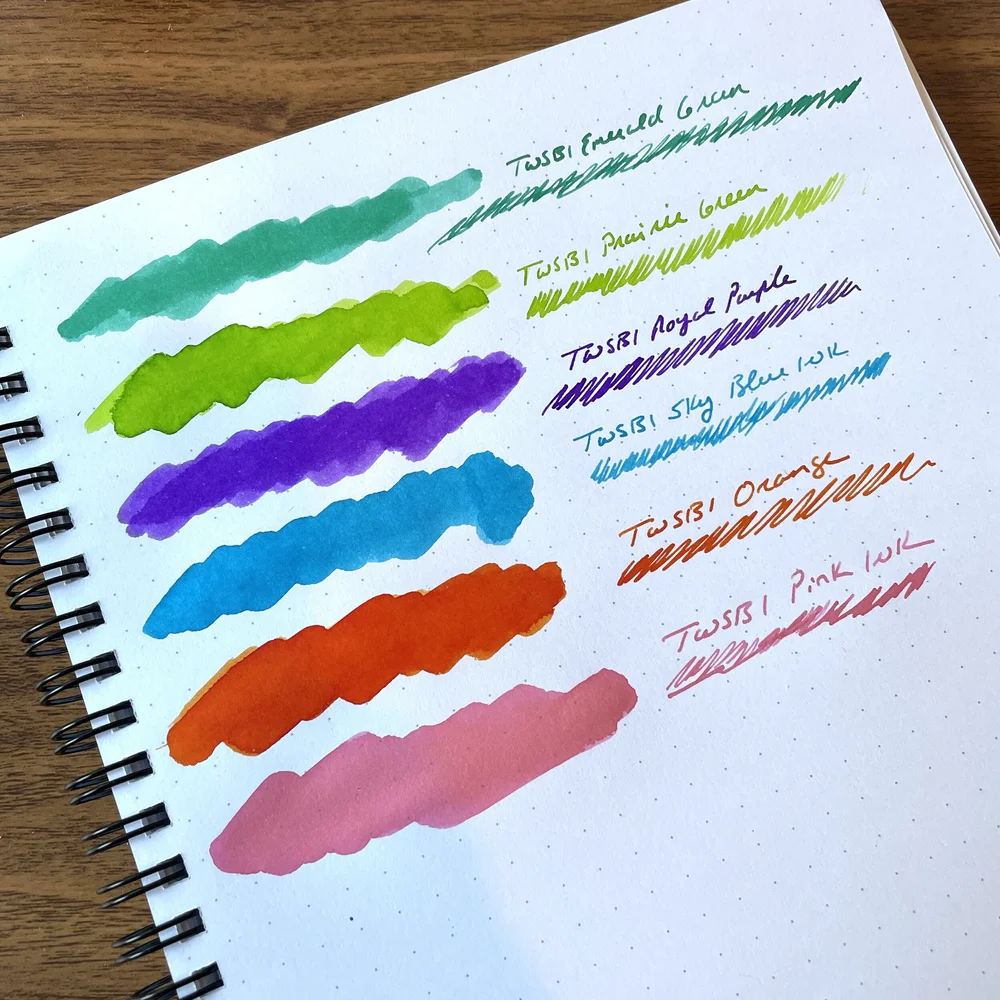 TWSBI Emerald Green
TWSBI Prairie Green
TWSBI Royal Purple
TWSBI Sky Blue Ink
TWSBI Orange
TWSBI Pink Ink